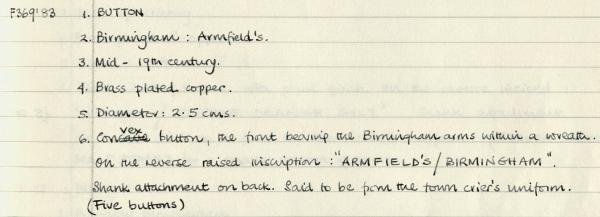 F369'83 1. BUTTON
2. Birmingham : Armfield's.
3. Mid - 19th century.
4. Brass plated copper.
5. Diameter: 2.5 cms.
6. Convex button, the front bearing the Birmingham arms within a wreath.
On the reverse raised inscription : "ARMFIELD'S / BIRMINGHAM".
Shank attachment on back. Said to be from the town crier's uniform.
(Five buttons)